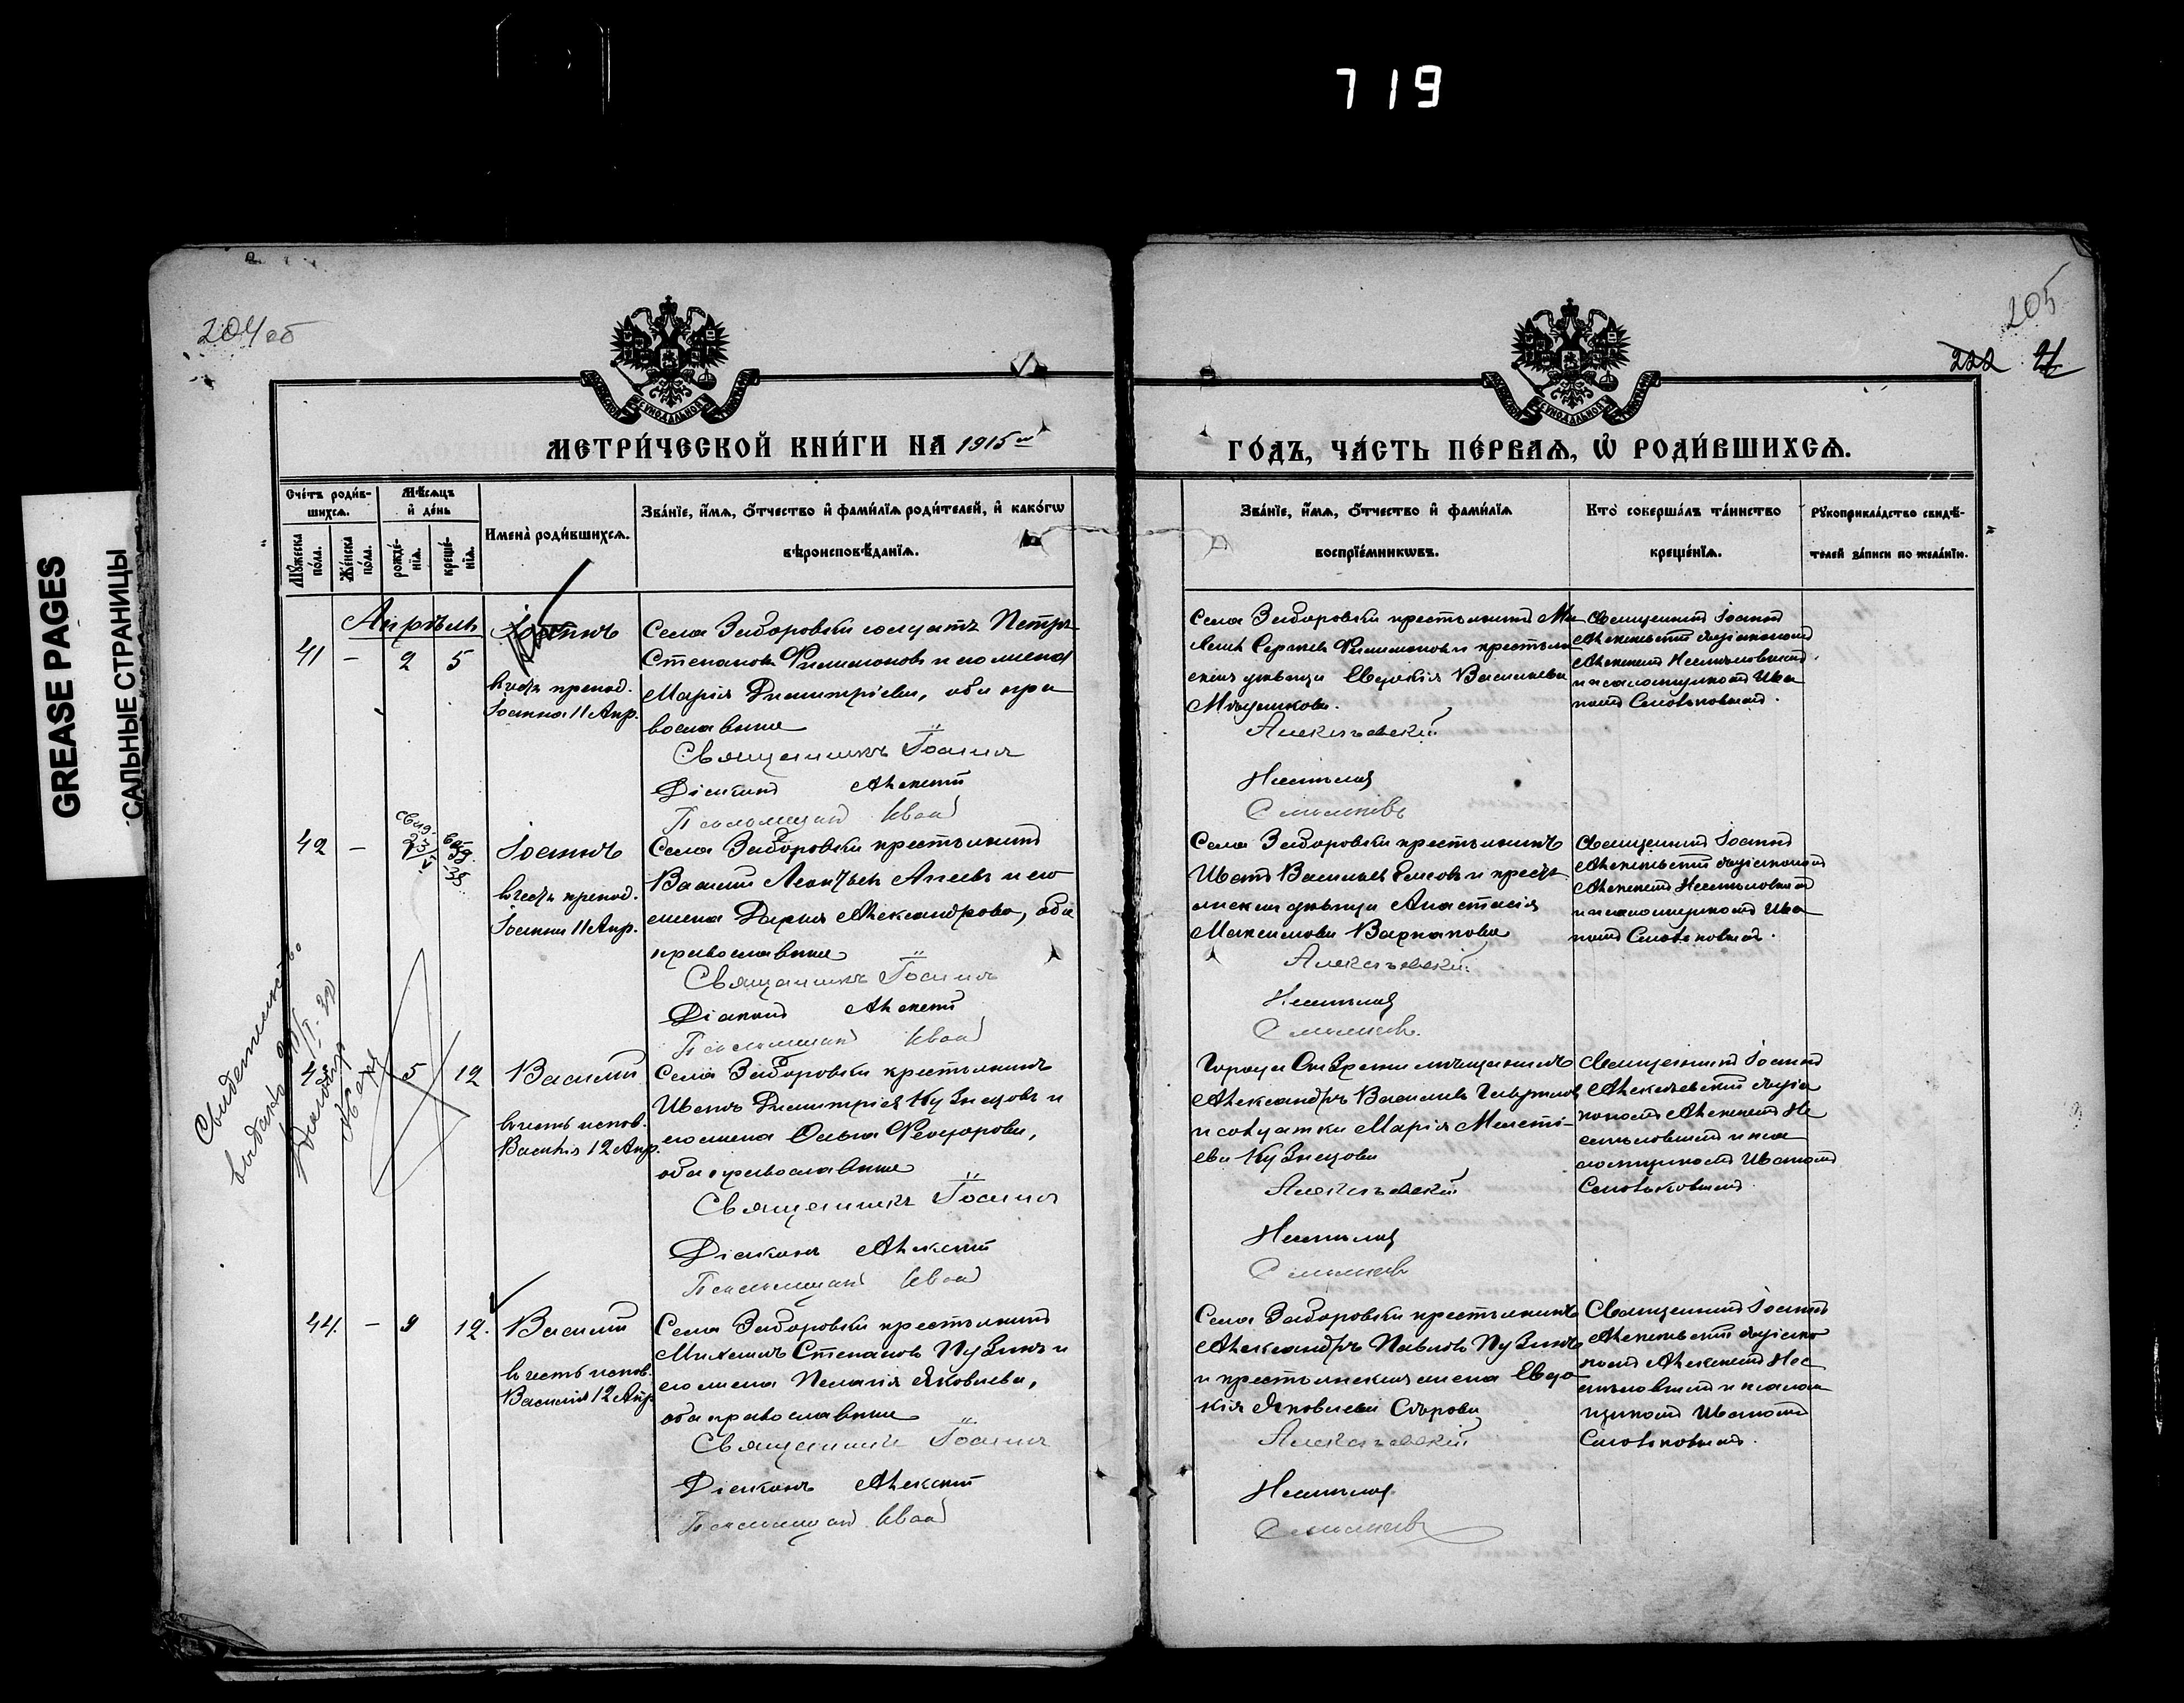 719
GREASE PAGES
САЛЬНЫЕ СТРАНИЦЫ
204об
205
222
МЕТРИ́ЧЕСКОЙ КНИ́ГИ НА 1915й
ГО́ДЪ, ЧА́СТЬ ПЕ́РВАѦ, Ѡ҆ РОДИ́ВШИХСѦ.
Сче́тъ роди́в-
шихсѧ.
Мꙋ́жеска по́ла.
Же́нска по́ла.
Мѣ́сѧцъ
и҆ де́нь
рожде́-
нїѧ.
креще́-
нїѧ.
И҆мена̀ роди́вшихсѧ.
Зва́нїе, и҆́мѧ, ѻ҆́тчество и҆ фами́лїѧ роди́телей, и҆ како́гѡ
вѣроисповѣ́данїѧ.
Зва́нїе, и҆́мѧ, ѻ҆́тчество и҆ фами́лїѧ
воспрїе́мникѡвъ.
Кто̀ соверша́лъ та́инство
креще́нїѧ.
Рꙋкоприкла́дство свидѣ́-
телей за́писи по жела́нїю.
Апрѣль
41 - 2 5
Іоаннъ
въ честь препод.
Іоанна 11 Апр.
Села Заборовки солдатъ Петръ
Степановъ Филимоновъ и его жена
Марія Димитріева, оба пра
вославные
Священникъ Іоаннъ
Діаконъ Алексей
Псаломщикъ Иван
Села Заборовки крестьянинъ Ми
Сергеевъ Филимоновъ и крестьян
ская девица Евдокія Васильева
Мещякова.
Алексеевскій
Несмелов
Смольковъ
Священникъ Іоаннъ
Алексеевскій съ діакономъ
Алексеемъ Несмеловымъ
и псаломщикомъ Ива
номъ Смольковымъ.
42 -
Іоаннъ
въ честь препод.
Іоанна 11 Апр.
Села Заборовки крестьянинъ
Василій Леонтьевъ Агеевъ и его
жена Дарья Александрова, оба
православные
Священникъ Іоаннъ
Діаконъ Алексей
Псаломщикъ Иван
Села Заборовки крестьянинъ
Иванъ Васильевъ и крестьянская девица Анастасія
Максимова Варнакова
Алексеевскій
Несмелов
Смольков
Священникъ Іоаннъ
Алексеевскій съ діакономъ
Алексеемъ Несмеловымъ
и псаломщикомъ Ива
номъ Смольковымъ.
Свидетельство
выдано
5 12
Василій
въ честь испов.
Василія 12 Апр.
Села Заборовки крестьянинъ
Иванъ Димитріевъ Кузнецовъ и
его жена Ольга Феодорова,
оба православные
Священникъ Іоаннъ
Діаконъ Алексей
Псаломщикъ Иван
Города Сызрани мещанинъ
Александръ Васильевъ
и солдатка Марія
ева Кузнецова
Алексеевскій
Несмелов
Смольков
Священникъ Іоаннъ
Алексеевскій съ діа
кономъ Алексеемъ Не
смеловымъ и пса
ломщикомъ Иваномъ
Смольковымъ
44. - 9 12.
Василій
въ честь испов.
Василія 12 Апр.
Села Заборовки крестьянинъ
Михаилъ Степановъ Пузинъ и
его жена Пелагія Яковлева,
оба православные
Священникъ Іоаннъ
Діаконъ Алексей
Псаломщикъ Иван
Села Заборовки крестьянинъ
Александръ Павловъ Пузинъ
и крестьянская жена Евдо
кія Яковлева Серова
Алексеевскій
Несмелов
Смольков
Священникъ Іоаннъ
Алексеевскій съ діако
номъ Алексеемъ Нес
меловымъ и псалом
щикомъ Иваномъ
Смольковымъ.